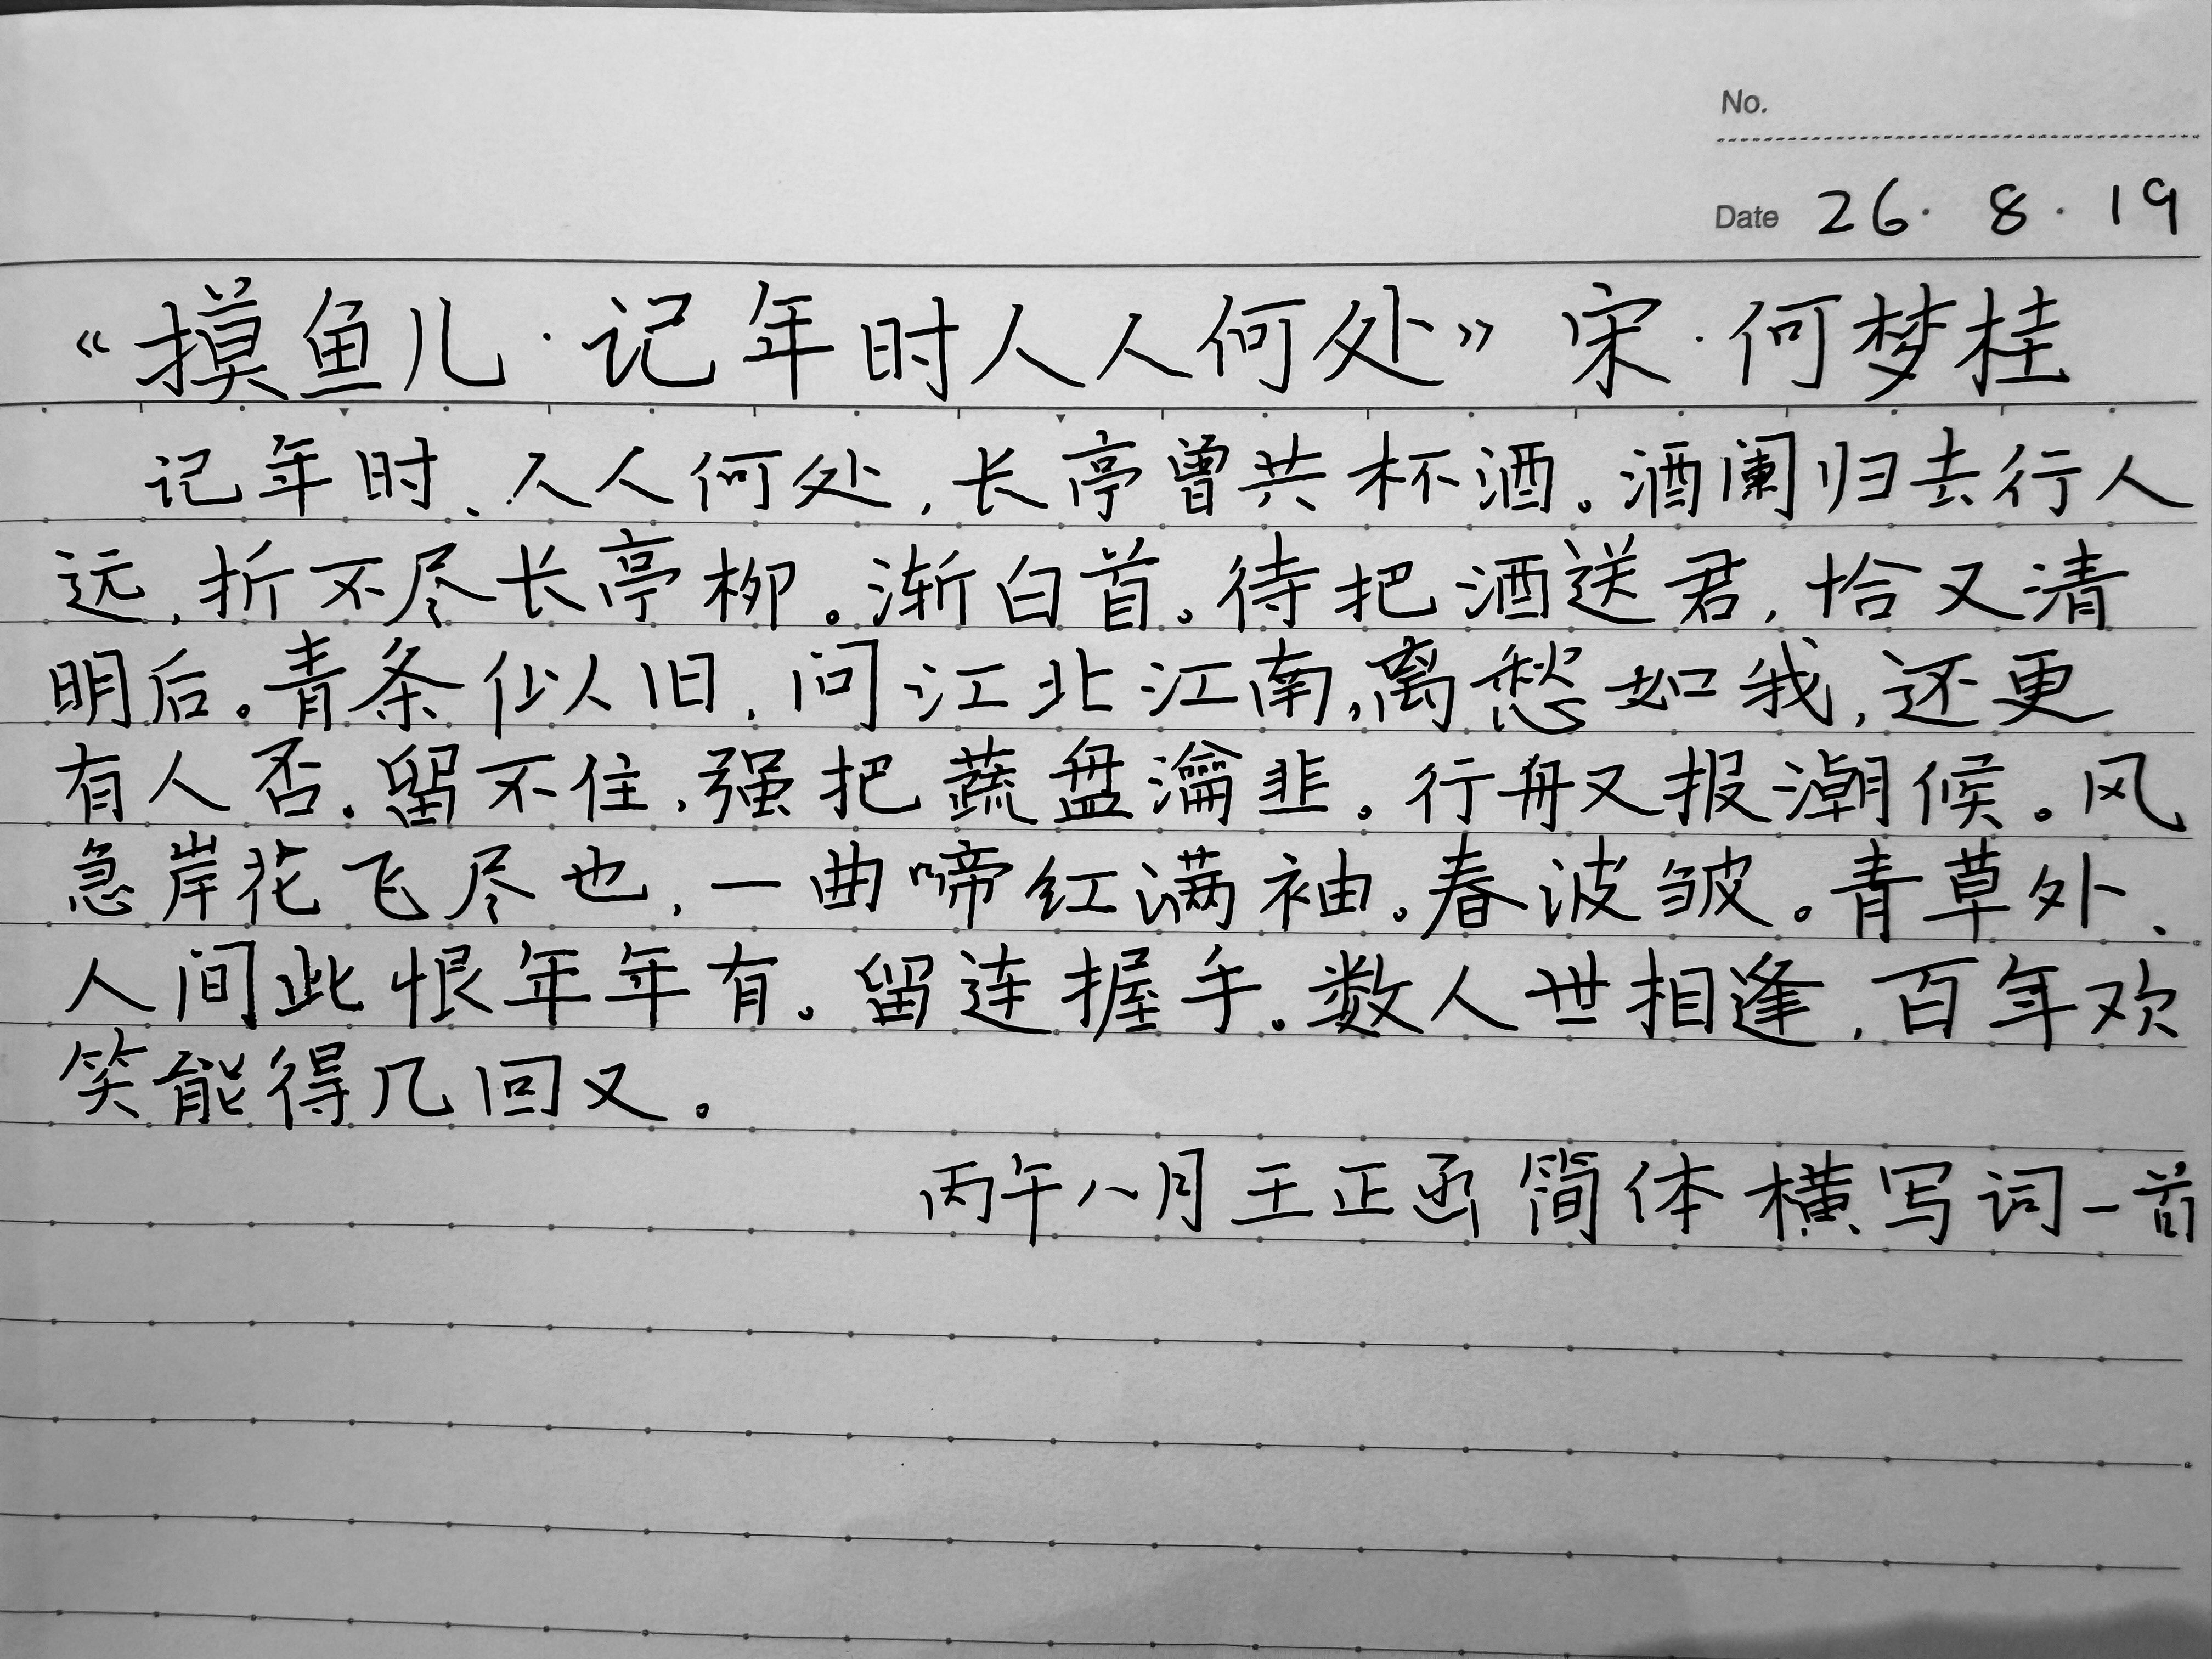 No.
Date 26.8.19
《摸鱼儿·记年时人人何处》宋·何梦桂
记年时、人人何处,长亭曾共杯酒。酒阑归去行人
远,折不尽长亭柳。渐白首。待把酒送君,恰又清
明后。青条似旧,问江北江南,离愁如我,还更
有人否。留不住,强把蔬盘瀹韭。行舟又报潮候。风
急岸花飞尽也,一曲啼红满袖。春波皱。青草外、
人间此恨年年有。留连握手。数人世相逢,百年欢
笑能得几回又。
丙午八月王正函简体横写词一首